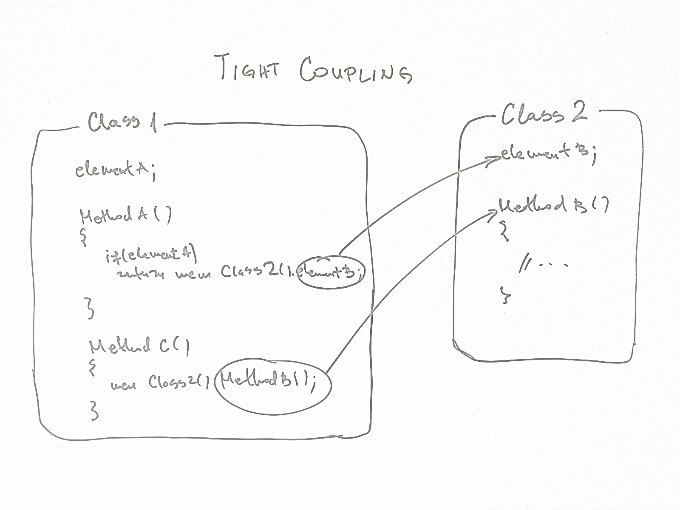 TIGHT COUPLING
Class 1
elementA;
MethodA()
{
if(elementA)
return new Class2().elementB;
}
MethodC()
{
new Class2().MethodB();
}
Class 2
elementB;
MethodB()
{
//...
}